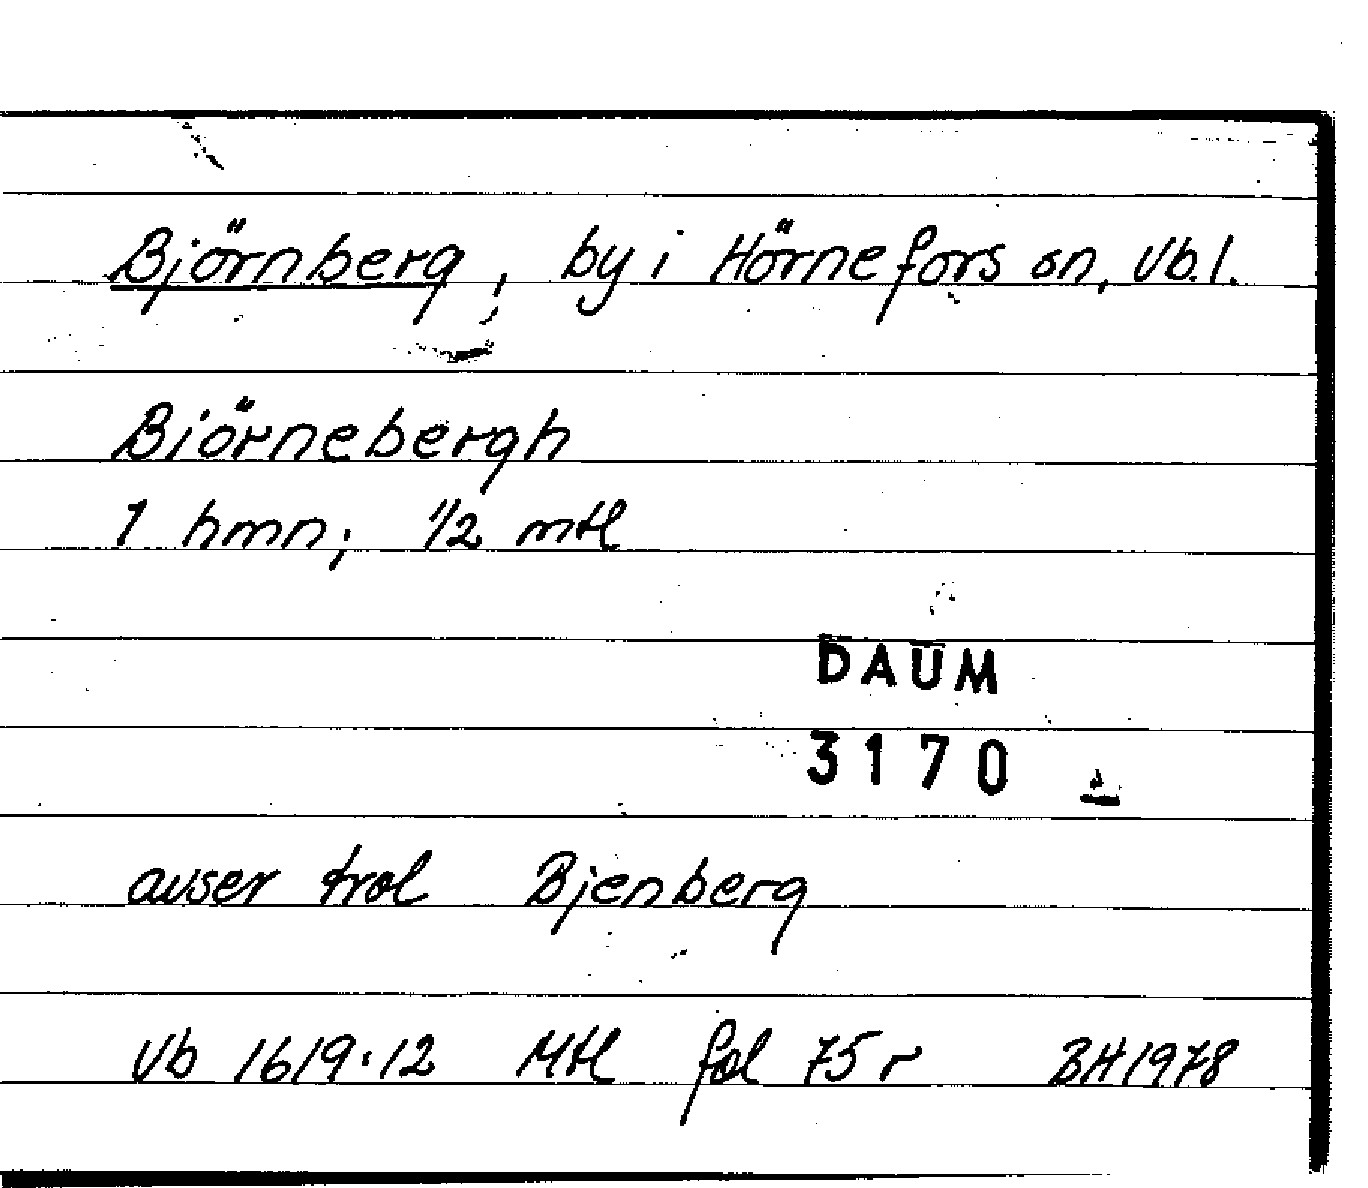 Björnberg, by i Hörnefors sn, Vb.l.
Biörnebergh
1 hmn; 1/2 mtl
DAUM
3170
avser trol Bjenberg
Vb 1619:12 Mtl fol 75 r BH 1978